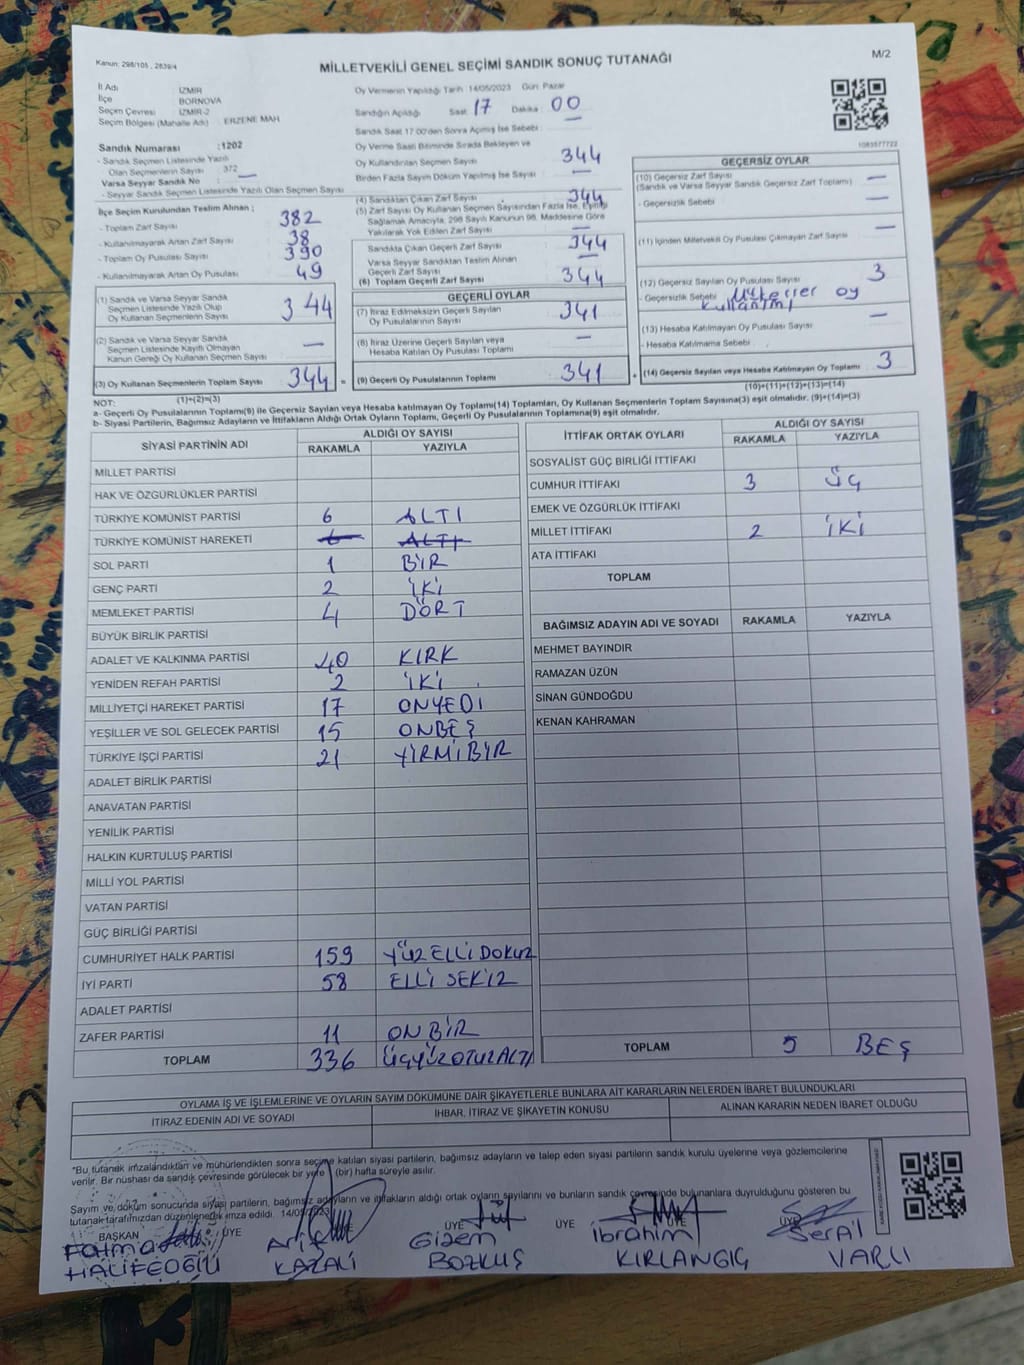 Kanun: 298/105 , 2839/4
MİLLETVEKİLİ GENEL SEÇİMİ SANDIK SONUÇ TUTANAĞI
M/2
İl Adı : İZMİR
İlçe : BORNOVA
Seçim Çevresi : İZMİR-2
Seçim Bölgesi (Mahalle Adı) : ERZENE MAH
Sandık Numarası :1202
- Sandık Seçmen Listesinde Yazılı
Olan Seçmenlerin Sayısı : 372
Varsa Seyyar Sandık No :
- Seyyar Sandık Seçmen Listesinde Yazılı Olan Seçmen Sayısı
İlçe Seçim Kurulundan Teslim Alınan ;
- Toplam Zarf Sayısı 382
- Kullanılmayarak Artan Zarf Sayısı 38
- Toplam Oy Pusulası Sayısı 390
- Kullanılmayarak Artan Oy Pusulası 49
(1) Sandık ve Varsa Seyyar Sandık
Seçmen Listesinde Yazılı Olup
Oy Kullanan Seçmenlerin Sayısı 344
(2) Sandık ve Varsa Seyyar Sandık
Seçmen Listesinde Kayıtlı Olmayan
Kanun Gereği Oy Kullanan Seçmen Sayısı —
(3) Oy Kullanan Seçmenlerin Toplam Sayısı 344 =
(1)+(2)=(3)
Oy Vermenin Yapıldığı Tarih 14/05/2023 Gün: Pazar
Sandığın Açılışı Saat: 17 Dakika : 00
Sandık Saat 17.00'den Sonra Açılmış İse Sebebi : —
Oy Verme Saati Bitiminde Sırada Bekleyen ve
Oy Kullandırılan Seçmen Sayısı 344
Birden Fazla Sayım Döküm Yapılmış İse Sayısı —
(4) Sandıktan Çıkan Zarf Sayısı 344
(5) Zarf Sayısı Oy Kullanan Seçmen Sayısından Fazla İse, Eşitliği
Sağlamak Amacıyla, 298 Sayılı Kanunun 98. Maddesine Göre
Yakılarak Yok Edilen Zarf Sayısı —
Sandıkta Çıkan Geçerli Zarf Sayısı 344
Varsa Seyyar Sandıktan Teslim Alınan
Geçerli Zarf Sayısı —
(6) Toplam Geçerli Zarf Sayısı 344
GEÇERLİ OYLAR
(7) İtiraz Edilmeksizin Geçerli Sayılan
Oy Pusulalarının Sayısı 341
(8) İtiraz Üzerine Geçerli Sayılan veya
Hesaba Katılan Oy Pusulası Toplamı —
(9) Geçerli Oy Pusulalarının Toplamı 341 +
1083577722
GEÇERSİZ OYLAR
(10) Geçersiz Zarf Sayısı
(Sandık ve Varsa Seyyar Sandık Geçersiz Zarf Toplamı) —
- Geçersizlik Sebebi —
(11) İçinden Milletvekili Oy Pusulası Çıkmayan Zarf Sayısı —
(12) Geçersiz Sayılan Oy Pusulası Sayısı 3
- Geçersizlik Sebebi Mükerrer oy
kullanımı
(13) Hesaba Katılmayan Oy Pusulası Sayısı —
- Hesaba Katılmama Sebebi
(14) Geçersiz Sayılan veya Hesaba Katılmayan Oy Toplamı 3
(10)+(11)+(12)+(13)=(14)
NOT:
a- Geçerli Oy Pusulalarının Toplamı(9) ile Geçersiz Sayılan veya Hesaba katılmayan Oy Toplamı(14) Toplamları, Oy Kullanan Seçmenlerin Toplam Sayısına(3) eşit olmalıdır. (9)+(14)=(3)
b- Siyasi Partilerin, Bağımsız Adayların ve İttifakların Aldığı Ortak Oyların Toplamı, Geçerli Oy Pusulalarının Toplamına(9) eşit olmalıdır.
SİYASİ PARTİNİN ADI ALDIĞI OY SAYISI
RAKAMLA YAZIYLA
MİLLET PARTİSİ
HAK VE ÖZGÜRLÜKLER PARTİSİ
TÜRKİYE KOMÜNİST PARTİSİ 6 ALTI
TÜRKİYE KOMÜNİST HAREKETİ 6 ALTI
SOL PARTİ 1 BİR
GENÇ PARTİ 2 İKİ
MEMLEKET PARTİSİ 4 DÖRT
BÜYÜK BİRLİK PARTİSİ
ADALET VE KALKINMA PARTİSİ 40 KIRK
YENİDEN REFAH PARTİSİ 2 İKİ
MİLLİYETÇİ HAREKET PARTİSİ 17 ONYEDİ
YEŞİLLER VE SOL GELECEK PARTİSİ 15 ONBEŞ
TÜRKİYE İŞÇİ PARTİSİ 21 YİRMİBİR
ADALET BİRLİK PARTİSİ
ANAVATAN PARTİSİ
YENİLİK PARTİSİ
HALKIN KURTULUŞ PARTİSİ
MİLLİ YOL PARTİSİ
VATAN PARTİSİ
GÜÇ BİRLİĞİ PARTİSİ
CUMHURİYET HALK PARTİSİ 159 YÜZELLİDOKUZ
İYİ PARTİ 58 ELLİ SEKİZ
ADALET PARTİSİ
ZAFER PARTİSİ 11 ONBİR
TOPLAM 336 ÜÇYÜZOTUZALTI
İTTİFAK ORTAK OYLARI ALDIĞI OY SAYISI
RAKAMLA YAZIYLA
SOSYALİST GÜÇ BİRLİĞİ İTTİFAKI
CUMHUR İTTİFAKI 3 ÜÇ
EMEK VE ÖZGÜRLÜK İTTİFAKI
MİLLET İTTİFAKI 2 İKİ
ATA İTTİFAKI
TOPLAM
BAĞIMSIZ ADAYIN ADI VE SOYADI RAKAMLA YAZIYLA
MEHMET BAYINDIR
RAMAZAN ÜZÜN
SİNAN GÜNDOĞDU
KENAN KAHRAMAN
TOPLAM 5 BEŞ
OYLAMA İŞ VE İŞLEMLERİNE VE OYLARIN SAYIM DÖKÜMÜNE DAİR ŞİKAYETLERLE BUNLARA AİT KARARLARIN NELERDEN İBARET BULUNDUKLARI
İTİRAZ EDENİN ADI VE SOYADI İHBAR, İTİRAZ VE ŞİKAYETİN KONUSU ALINAN KARARIN NEDEN İBARET OLDUĞU
*Bu tutanak imzalandıktan ve mühürlendikten sonra seçime katılan siyasi partilerin, bağımsız adayların ve talep eden siyasi partilerin sandık kurulu üyelerine veya gözlemcilerine
verilir. Bir nüshası da sandık çevresinde görülecek bir yere 1 (bir) hafta süreyle asılır.
Sayım ve döküm sonucunda siyasi partilerin, bağımsız adayların ve ittifakların aldığı ortak oyların sayılarını ve bunların sandık çevresinde bulunanlara duyrulduğunu gösteren bu
tutanak tarafımızdan düzenlenerek imza edildi. 14/05/2023
BAŞKAN ÜYE ÜYE ÜYE ÜYE ÜYE
Fatma HALİFEOĞLU
Arif KAZALİ
Gizem BOZKUŞ
İbrahim KIRLANGIÇ
Serail VARLI